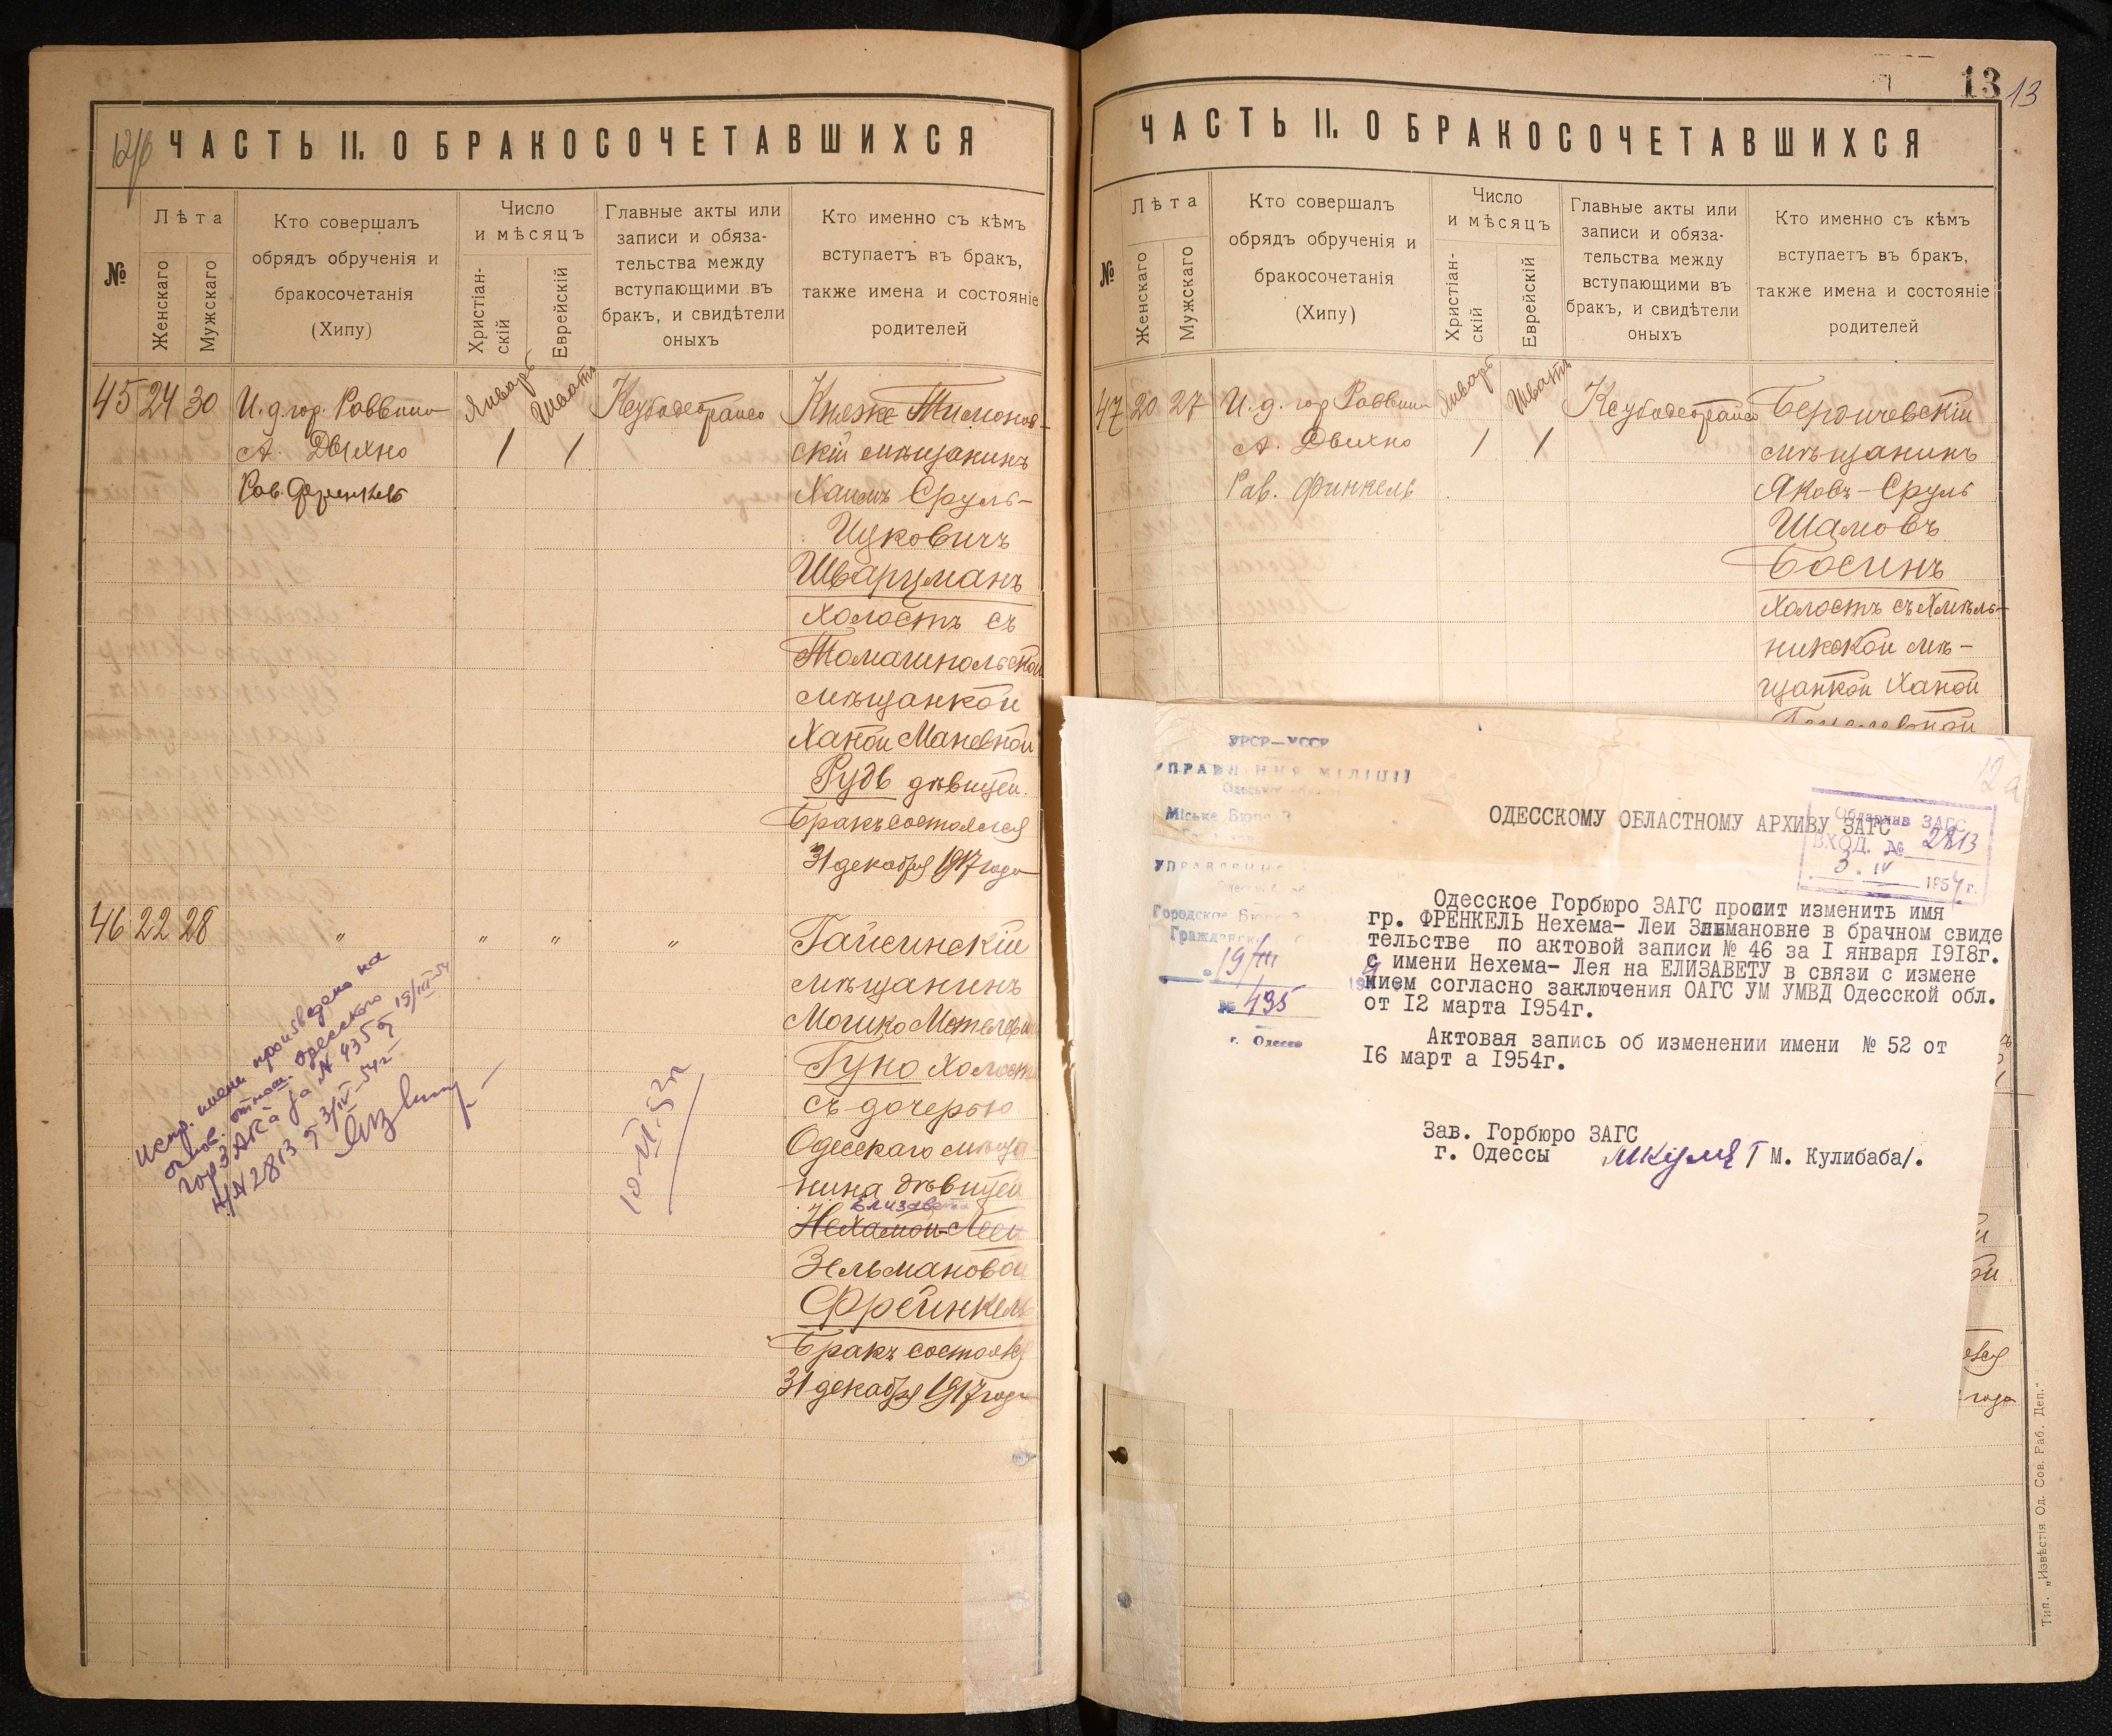 ЧАСТЬ II. О БРАКОСОЧЕТАВШИХСЯ
№
Лѣта
Женскаго
Мужскаго
Кто совершалъ
обрядъ обрученія и
бракосочетанія
(Хипу)
Число
и мѣсяцъ
Христіан-
скій
Еврейскій
Главные акты или
записи и обяза-
тельства между
вступающими въ
бракъ, и свидѣтели
оныхъ
Кто именно съ кѣмъ
вступаетъ въ бракъ,
также имена и состояніе
родителей
45 24 30
И. д. гор. Раввина
А. Двихно
Рав.
Январь
Шватъ
1 1
Княже
скій мѣщанинъ
Хаимъ Сруль-
Ицковичъ
Шварцманъ
холостъ съ
мѣщанкой
Ханой Маневной
Рудь дѣвицей.
Бракъ состоялся
31 декабря 1917 года
46 22 28
" " " "
Гайсинскій
мѣщанинъ
Мошко
Гуко холостъ
съ дочерью
Одесскаго мѣща
нина дѣвицей
Елизавета
Нехамой-Леей
Зельмановой
Фрейнкель
Бракъ состоялся
31 декабря 1917 года
Испр. имени произведено на
основ. отнош. Одесского
горЗАГСа за № 435 от 19/III-54
н/№ 2813 от 3/IV-54г
10-VI.52г
13
13
ЧАСТЬ II. О БРАКОСОЧЕТАВШИХСЯ
№
Лѣта
Женскаго
Мужскаго
Кто совершалъ
обрядъ обрученія и
бракосочетанія
(Хипу)
Число
и мѣсяцъ
Христіан-
скій
Еврейскій
Главные акты или
записи и обяза-
тельства между
вступающими въ
бракъ, и свидѣтели
оныхъ
Кто именно съ кѣмъ
вступаетъ въ бракъ,
также имена и состояніе
родителей
47 20 27
И. д. гор Раввина
А. Двихно
Рав. Финкель
Январь
Шватъ
1 1
Бердичевскій
мѣщанинъ
Яковъ-Сруль
Шамовъ
Босинъ
холостъ съ Хмѣль-
никской мѣ-
щанкой Ханой
12а
УРСР—УССР
УПРАВЛІННЯ МІЛІЦІЇ
Міське Бюро
УПРАВЛЕНИЕ
Городское Бюро
Гражданск
19/III
№ 435
г. Одесса
Облархив ЗАГС
ВХОД. № 2813
3. IV 1954 г.
ОДЕССКОМУ ОБЛАСТНОМУ АРХИВУ ЗАГС
Одесское Горбюро ЗАГС просит изменить имя
гр. ФРЕНКЕЛЬ Нехема- Леи Зимановне в брачном свиде
тельстве по актовой записи № 46 за I января 1918г.
с имени Нехема- Лея на ЕЛИЗАВЕТУ в связи с измене
нием согласно заключения ОАГС УМ УМВД Одесской обл.
от 12 марта 1954г.
Актовая запись об изменении имени № 52 от
16 март а 1954г.
Зав. Горбюро ЗАГС
г. Одессы М. Кулибаба/.
года
Тип. „Извѣстія Од. Сов. Раб. Деп."